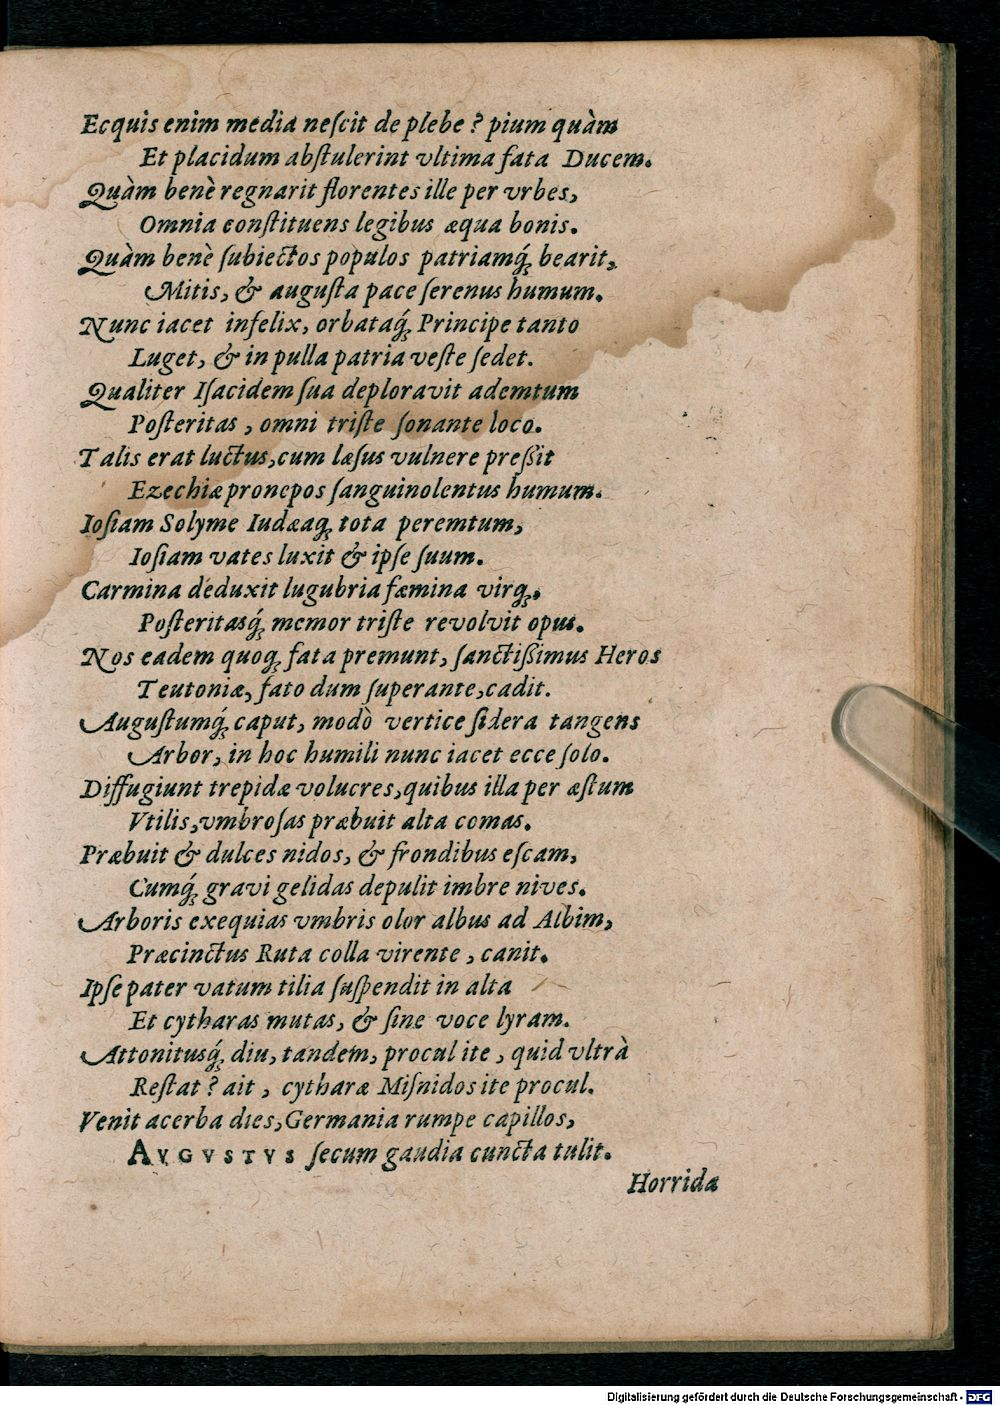 Ecquis enim media neſcit de plebe ? pium quàm
Et placidum abſtulerint vltima fata Ducem.
Quàm benè regnarit florentes ille per vrbes,
Omnia conſtituens legibus æqua bonis.
Quàm benè ſubiectos populos patriamq́; bearit,
Mitis, & auguſta pace ſerenus humum.
Nunc iacet infelix, orbataq́; Principe tanto
Luget, & in pulla patria veſte ſedet.
Qualiter Iſacidem ſua deploravit ademtum
Poſteritas , omni triſte ſonante loco.
Talis erat luctus, cum læſus vulnere preßit
Ezechiæ pronepos ſanguinolentus humum.
Ioſiam Solyme Iudæaq; tota peremtum,
Ioſiam vates luxit & ipſe ſuum.
Carmina deduxit lugubria fæmina virq;.
Poſteritasq́; memor triſte revolvit opus.
Nos eadem quoq; fata premunt, ſanctißimus Heros
Teutoniæ, fato dum ſuperante, cadit.
Auguſtumq́; caput, modò vertice ſidera tangens
Arbor, in hoc humili nunc iacet ecce ſolo.
Diffugiunt trepidæ volucres, quibus illa per æſtum
Vtilis, vmbroſas præbuit alta comas.
Præbuit & dulces nidos, & frondibus eſcam,
Cumq́; gravi gelidas depulit imbre nives.
Arboris exequias vmbris olor albus ad Albim,
Præcinctus Ruta colla virente , canit.
Ipſe pater vatum tilia ſuſpendit in alta
Et cytharas mutas, & ſine voce lyram.
Attonitusq́; diu, tandem, procul ite , quid vltrà
Reſtat ? ait , cytharæ Miſnidos ite procul.
Venit acerba dies, Germania rumpe capillos,
AVGVSTVS ſecum gaudia cuncta tulit.
Horridæ
Digitalisierung gefördert durch die Deutsche Forschungsgemeinschaft - DFG